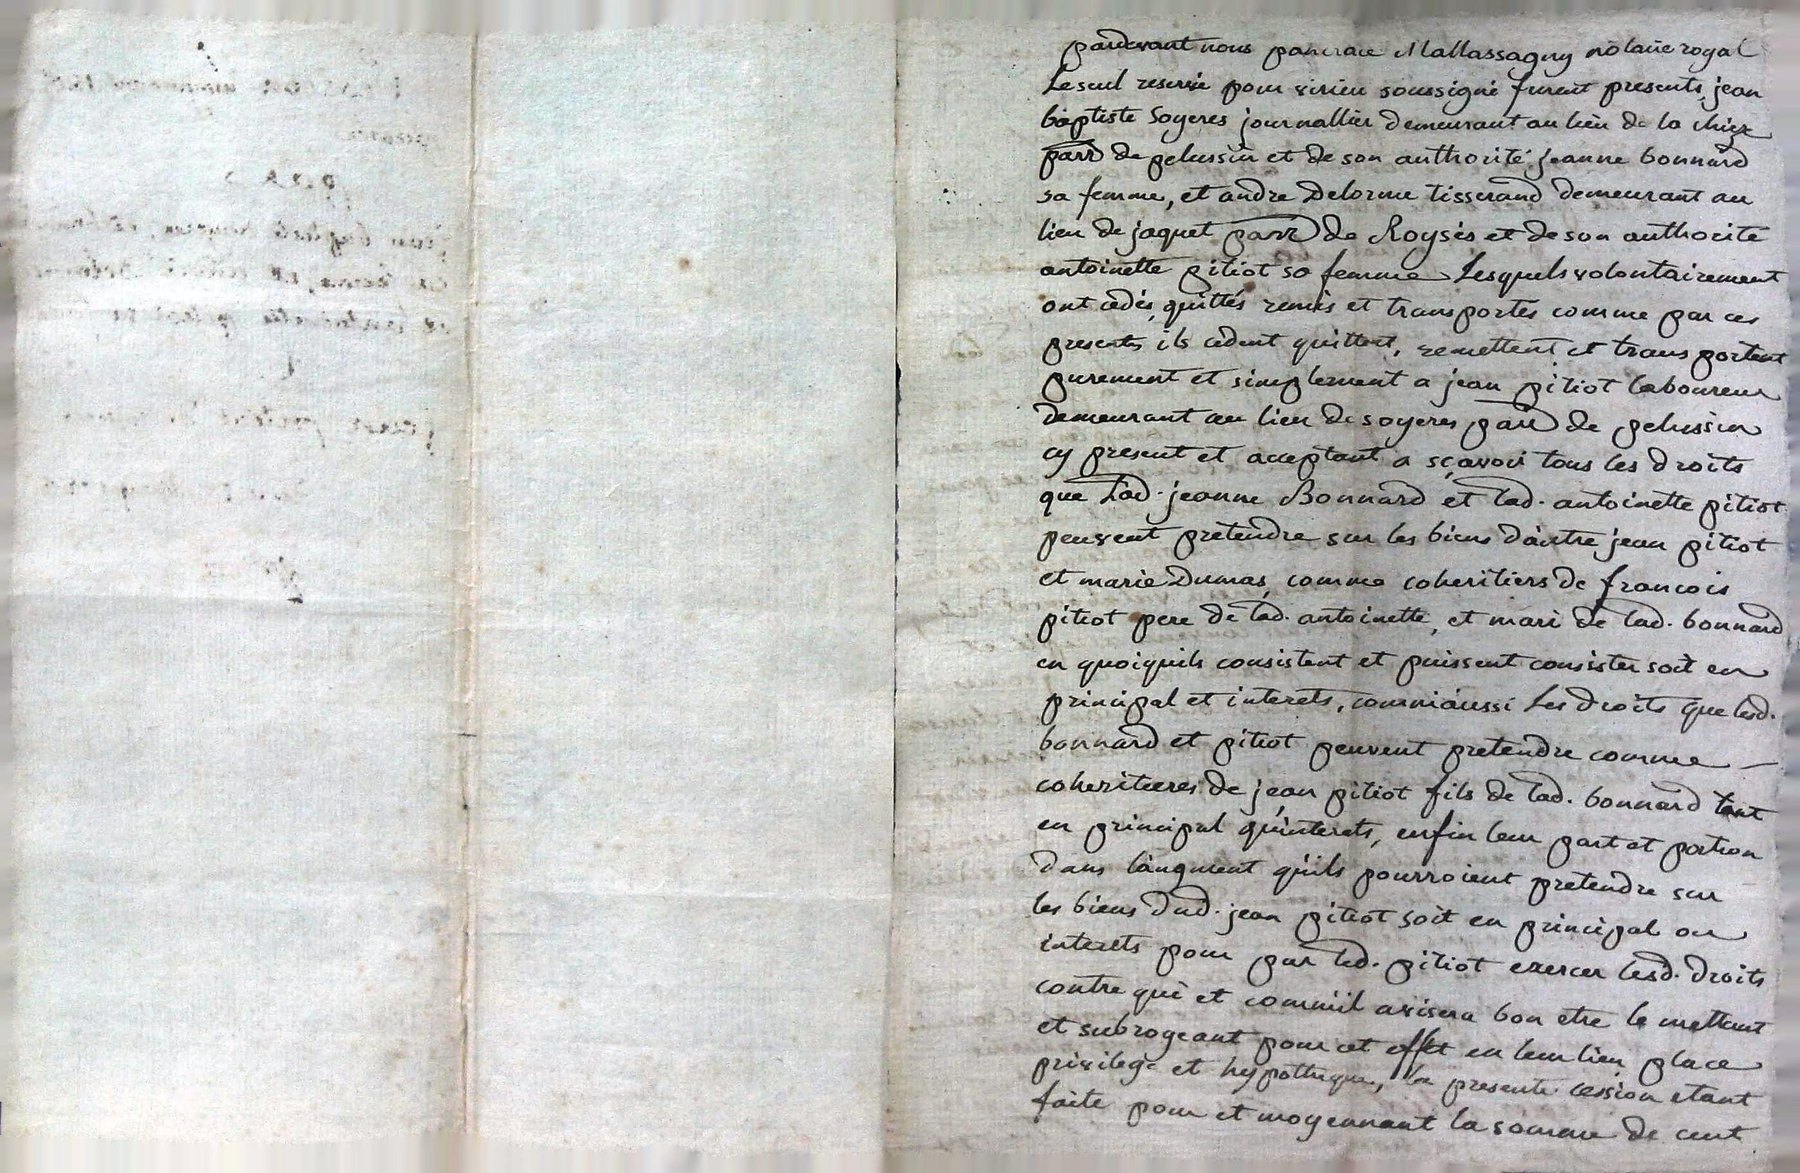 pardevant nous pancrace Mallassagny nôtaire royal
Le seul reservé pour virieu soussigné furent presents, jean
baptiste Soyeres journallier demeurant au lieu de la chieze
parr de pelussin et de son authorité jeanne bonnard
sa femme, et andre Delorme tisserand demeurant au
lieu de jaquet parr de Roysés et de son authorité
antoinette pitiot sa femme Lesquels volontairement
ont cedés, quittés remis et transportés comme par ces
presentes ils cedent quittent, remettent et transportent
purement et simplement a jean pitiot laboureur
demeurant au lieu de soyeres parr de pelussin
cy present et acceptant a sçavoir tous les droits
que Lad. jeanne Bonnard et lad. antoinette pitiot
peuvent pretendre sur les biens d'autre jean pitiot
et marie Dumas, comme coheritiers de francois
pitiot pere de lad. antoinette, et mari de lad. bonnard
en quoiquils consistent et puissent consister soit en
principal et interets, comm'aussi Les droits que lesd.
bonnard et pitiot peuvent pretendre comme
coheritieres de jean pitiot fils de lad. bonnard tant
en principal qu'interets, enfin leur part et portion
dans l'augment qu'ils pourroient pretendre sur
les biens dud. jean pitiot soit en principal ou
interets pour par led. pitiot exercer lesd. droits
contre qui et comm'il avisera bon etre le mettant
et subrogeant pour cet effet en leur lieu place
privilege et hypotheque, la presente cession etant
faite pour et moyennant la somme de cent